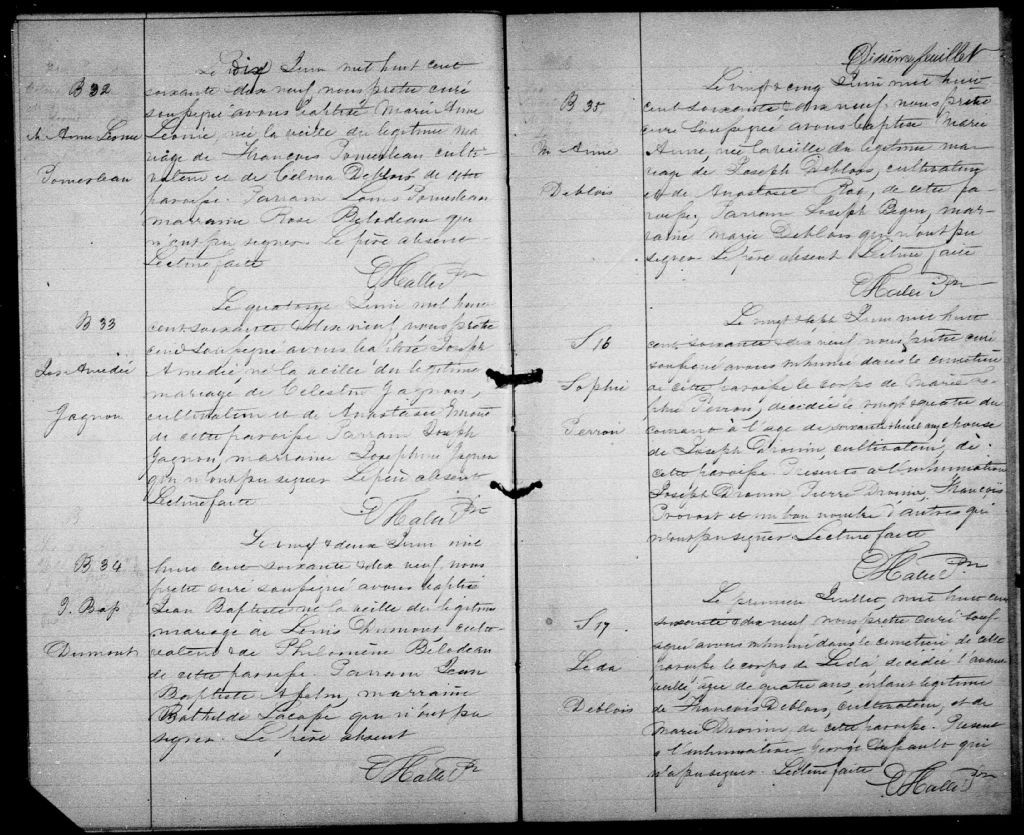 B 32
M. Anne Léonie
Pomerleau
Le dix Juin mil huit cent
soixante & dix neuf, nous prêtre curé
soussigné avons baptisé Marie Anne
Léonie, née la veille du légitime ma-
riage de François Pomerleau culti-
vateur et de Célina Deblois de cette
paroisse. Parrain Louis Pomerleau
marraine Rose Bilodeau qui
n'ont pu signer. Le père absent
Lecture faite
B 33
Jos. Amédée
Gagnon
Le quatorze Juin mil huit
cent soixante & dix neuf, nous prêtre
curé soussigné avons baptisé Joseph
Amédé né la veille du légitime
mariage de Célestin Gagnon,
cultivateur et de Anastasie
de cette paroisse Parrain Joseph
Gagnon, marraine Josephine Gagnon
qui n'ont pu signer Le père absent
Lecture faite
B 34
J. Bap
Dumont
Le vingt & deux Juin mil
huit cent soixante & dix neuf, nous
prêtre curé soussigné avons baptisé
Jean Baptiste né la veille du légitime
mariage de Louis Dumont culti-
vateur & de Philomène Bilodeau
de cette paroisse Parrain Jean
Baptiste marraine
Bathilde Lacasse qui n'ont pu
signer. Le père absent
Dixième feuillet
B 35
M. Anne
Deblois
Le vingt & cinq Juin mil huit
cent soixante & dix neuf, nous prêtre
curé soussigné avons baptisé Marie
Anne, née la veille du légitime ma-
riage de Joseph Deblois, cultivateur
et de Anastasie Roy, de cette pa-
roisse, Parrain Joseph Begin, mar-
raine Marie Deblois qui n'ont pu
signer Le père absent Lecture faite
S 16
Sophie
Perron
Le vingt & sept Juin mil huit
cent soixante & dix neuf nous prêtre curé
soussigné avons inhumé dans le cimetière
de cette paroisse le corps de Marie So-
phie Perron, décédée le vingt & quatre du
courant à l'age de soixante & huit ans épouse
de Joseph Drouin, cultivateur, de
cette paroisse Présents à l'inhumation
Joseph Drouin Pierre Drouin, François
Provost et un bon nombre d'autres qui
n'ont pu signer Lecture faite
S 17
Léda
Deblois
Le premier Juillet, mil huit cent
soixante & dix neuf nous prêtre curé sous-
signé avons inhumé dans le cimetière de cette
paroisse le corps de Léda décédée l'avant
veille, âgée de quatre ans, enfant légitime
de François Deblois, cultivateur, et de
Marie Drouin, de cette paroisse. Présent
à l'inhumation George Dupault qui
n'a pu signer. Lecture faite